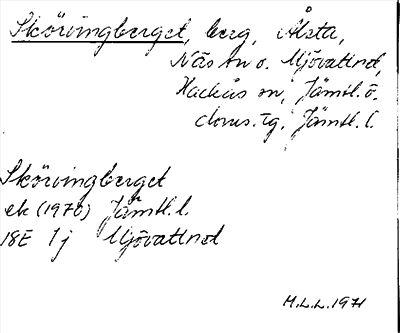 Skörvingberget, berg, Ålsta,
Näs sn o. Mjövattnet,
Hackås sn, Jämtl. ö.
doms. tg. Jämtl. l.
Skörvingberget
ek (1970) Jämtl. l.
18E 1j Mjövattnet
M.L.L. 1971